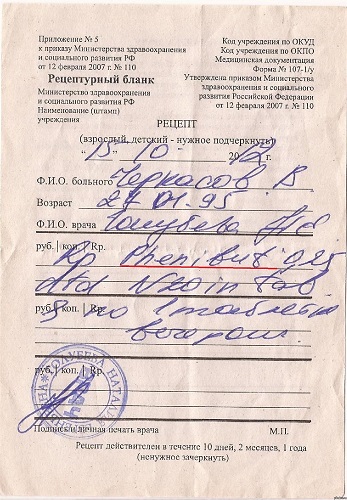 Приложение № 5
к приказу Министерства здравоохранения
и социального развития РФ
от 12 февраля 2007 г. № 110
Рецептурный бланк
Министерство здравоохранения
и социального развития РФ
Наименование (штамп)
учреждения
Код учреждения по ОКУД
Код учреждения по ОКПО
Медицинская документация
Форма № 107-1/у
Утверждена приказом Министерства
здравоохранения и социального
развития Российской Федерации
от 12 февраля 2007 г. № 110
РЕЦЕПТ
(взрослый, детский - нужное подчеркнуть)
"15" 10 2012 г.
Ф.И.О. больного Черкасов В
Возраст 27 01-95
Ф.И.О. врача Голубева
руб. | коп. | Rp.
Rp Phenibuti 0,25
dtd N20 in tab
руб. | коп. | Rp.
S по 1 таблетке
вечером
руб. | коп. | Rp.
ГОЛУБЕВА НАТАЛЬЯ
врач
Подпись и личная печать врача М.П.
Рецепт действителен в течение 10 дней, 2 месяцев, 1 года
(ненужное зачеркнуть)